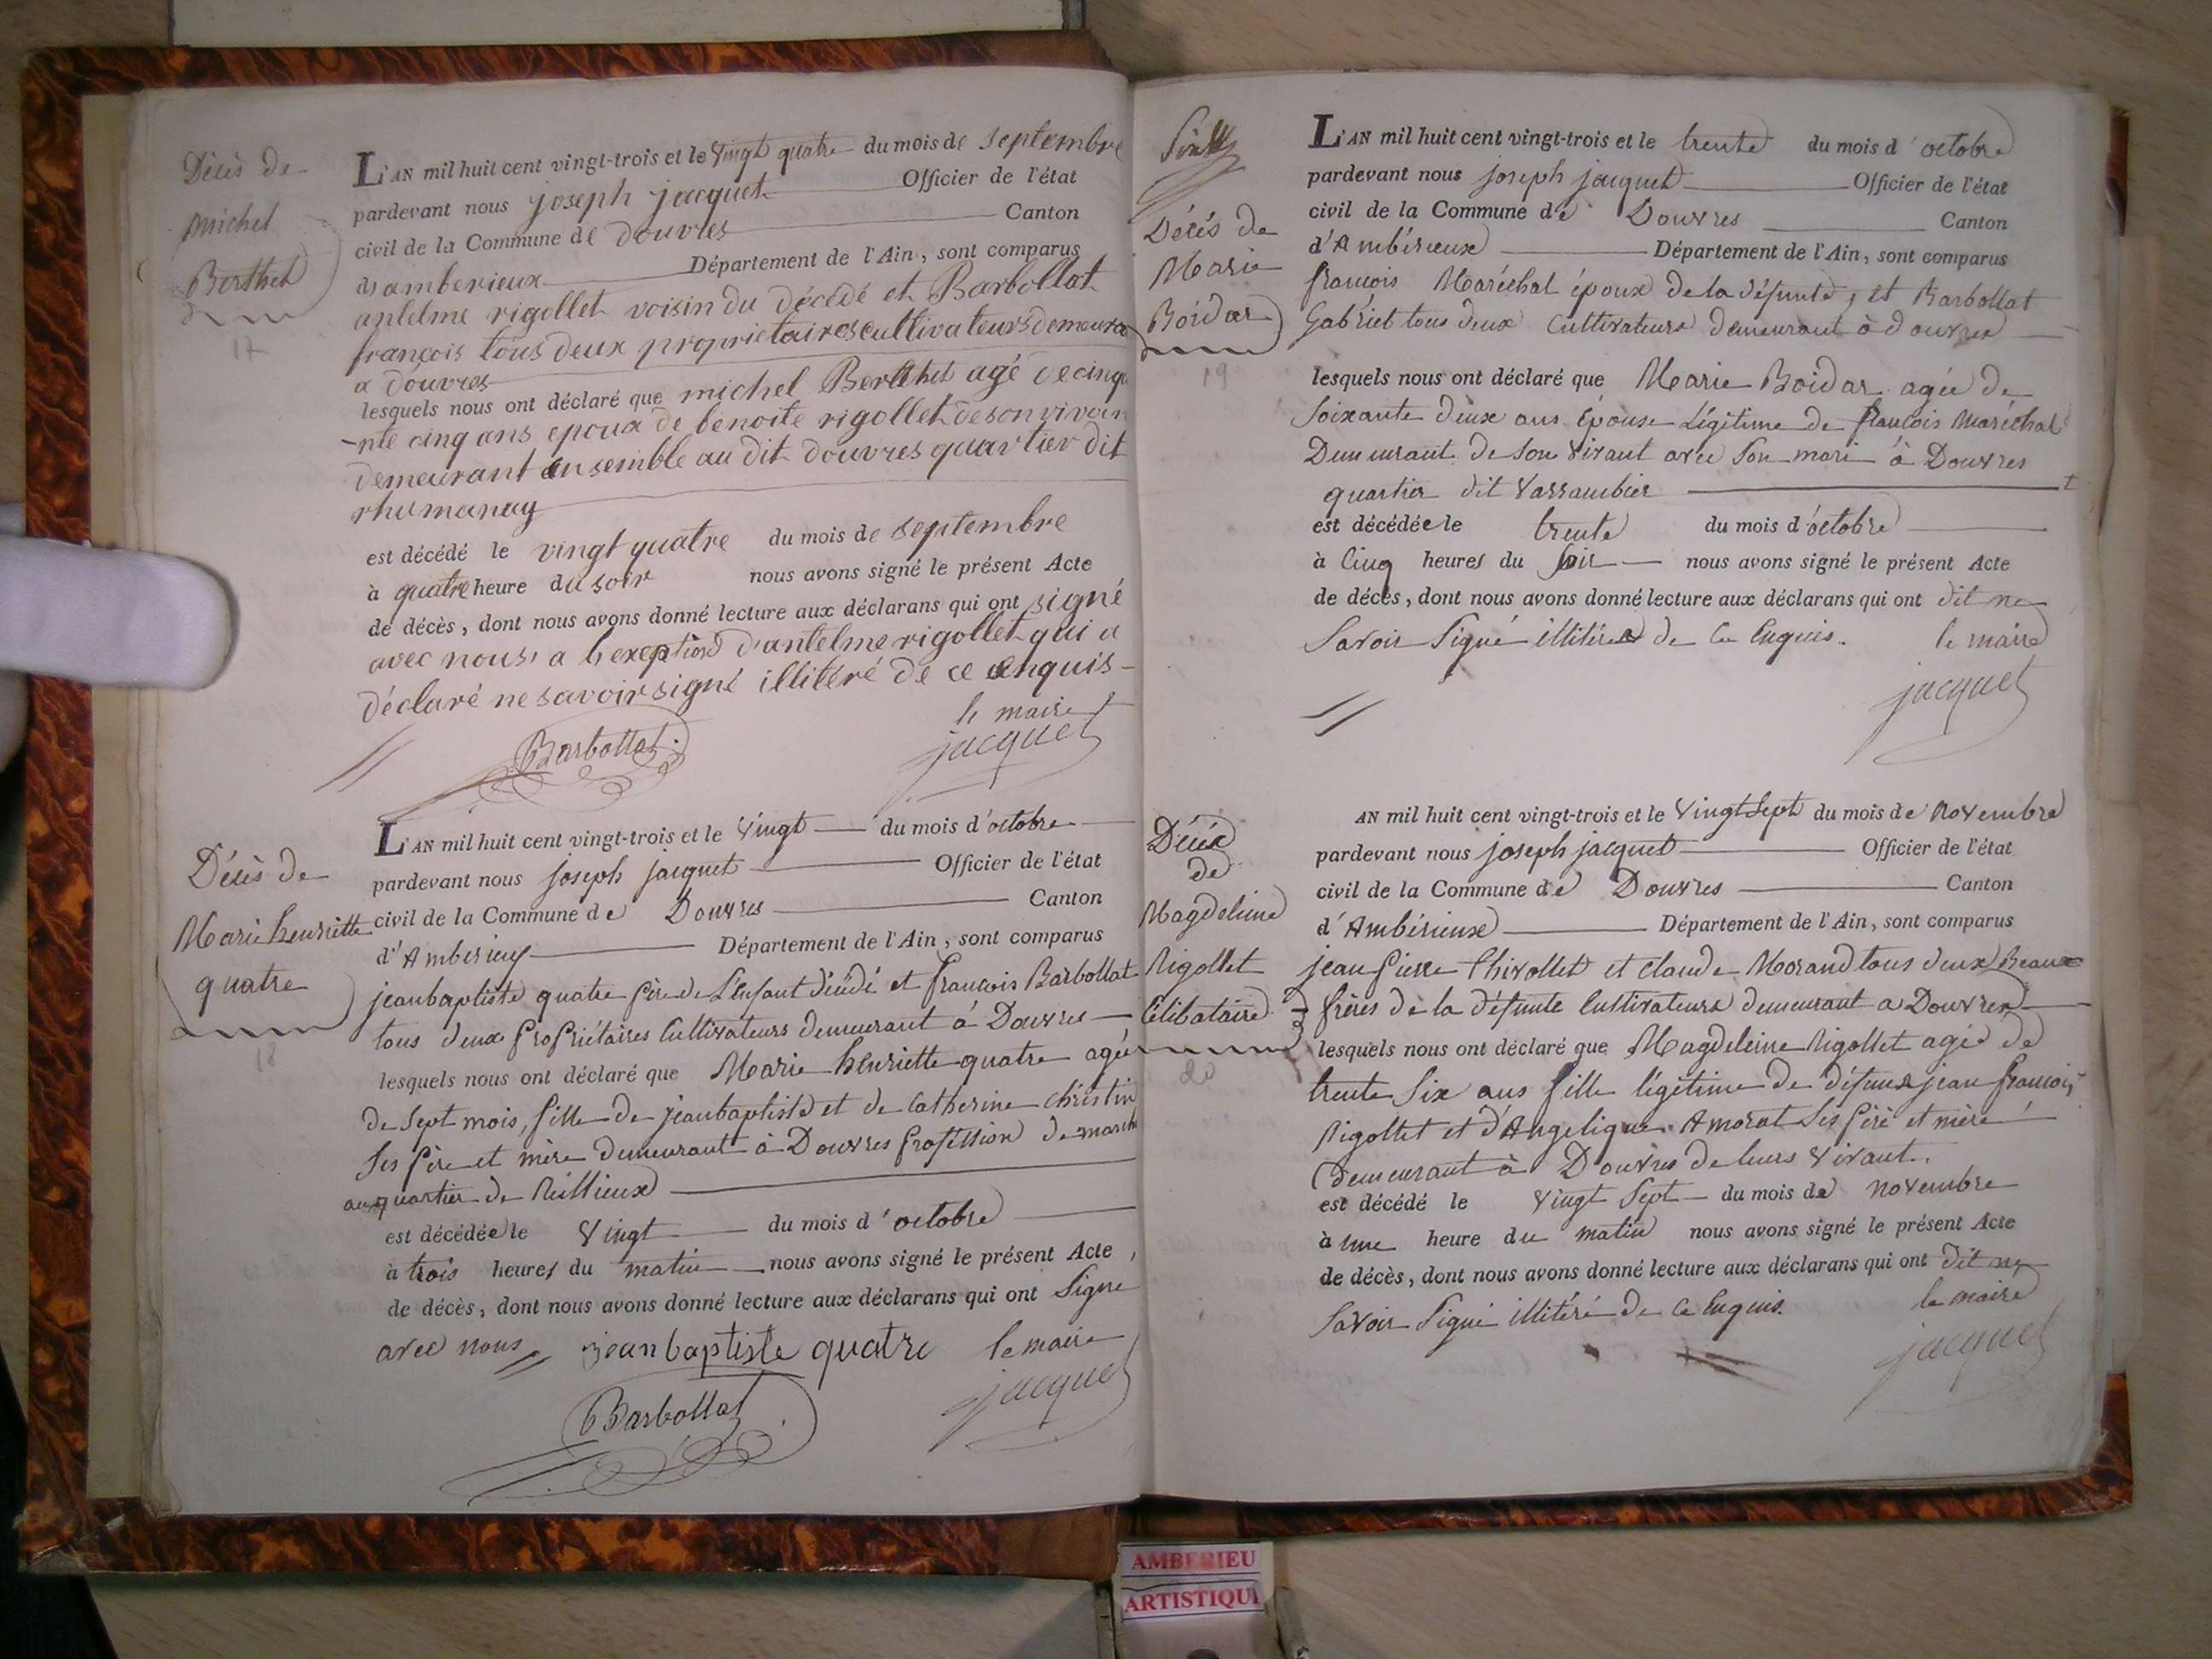 Décès de
michel
Berthet
17
L'AN mil huit cent vingt-trois et le vingt quatre du mois de septembre
pardevant nous joseph jacquet Officier de l'état
civil de la Commune de douvres Canton
d'amberieux Département de l'Ain, sont comparus
antelme rigollet voisin du décédé et Barbollat
françois tous deux proprietaires cultivateurs demeura
a douvres
lesquels nous ont déclaré que michel Berthet agé de cinqu
-nte cinq ans epoux de benoite rigollet de son vivan
demeurant ensemble au dit douvres quartier dit
rhumanay
est décédé le vingt quatre du mois de septembre
à quatre heure du soir nous avons signé le présent Acte
de décès, dont nous avons donné lecture aux déclarans qui ont signé
avec nous, a l'exeption d'antelme rigollet qui a
déclaré ne savoir signé illitéré de ce enquis-
le maire
Barbollat jacquet
Décès de
Marie henriette
quatre
18
L'AN mil huit cent vingt-trois et le Vingt du mois d'octobre
pardevant nous joseph jacquet Officier de l'état
civil de la Commune de Douvres Canton
d'Amberieux Département de l'Ain, sont comparus
jeanbaptiste quatre père de L'enfant décédé et françois Barbollat
tous deux Propriétaires Cultivateurs demeurant à Douvres
lesquels nous ont déclaré que Marie henriette quatre agée
de Sept mois, fille de jeanbaptiste et de Catherine christin
Ses père et mère demeurant à Douvres Profession de march
au quartier de Rillieux
est décédée le Vingt du mois d'octobre
à trois heures du matin nous avons signé le présent Acte,
de décès, dont nous avons donné lecture aux déclarans qui ont Signé
avec nous jean baptiste quatre le maire
Barbollat jacquet
Décès de
Marie
Boidar
19
L'AN mil huit cent vingt-trois et le trente du mois d'octobre
pardevant nous joseph jacquet Officier de l'état
civil de la Commune de Douvres Canton
d'Ambérieux Département de l'Ain, sont comparus
françois Maréchal époux de la défunte, et Barbollat
Gabriel tous deux Cultivateurs demeurant à douvres
lesquels nous ont déclaré que Marie Boidar agée de
Soixante deux ans Épouse Légitime de françois Maréchal
Demeurant de Son Vivant avec Son mari à Douvres
quartier dit Vassaubier
est décédée le trente du mois d'octobre
à Cinq heures du Soir nous avons signé le présent Acte
de décès, dont nous avons donné lecture aux déclarans qui ont dit ne
Savoir Signé illitéré de Ce Enquis. le maire
jacquet
Décès
de
Magdeleine
Rigollet
Célibataire
20
AN mil huit cent vingt-trois et le Vingt Sept du mois de Novembre
pardevant nous joseph jacquet Officier de l'état
civil de la Commune de Douvres Canton
d'Ambérieux Département de l'Ain, sont comparus
jean Pierre Chivollet et Claude Morand tous deux Beaux
frères de la défunte Cultivateurs demeurant a Douvres
lesquels nous ont déclaré que Magdeleine Rigollet agée de
trente Six ans fille légitime de défunt jean françois
Rigollet et d'Angelique Amorat Ses père et mère
Demeurant à Douvres de leurs Vivant.
est décédé le Vingt Sept du mois de Novembre
à une heure du matin nous avons signé le présent Acte
de décès, dont nous avons donné lecture aux déclarans qui ont dit ne
Savoir Signé illitéré de Ce Enquis. le maire
jacquet
AMBERIEU
ARTISTIQU